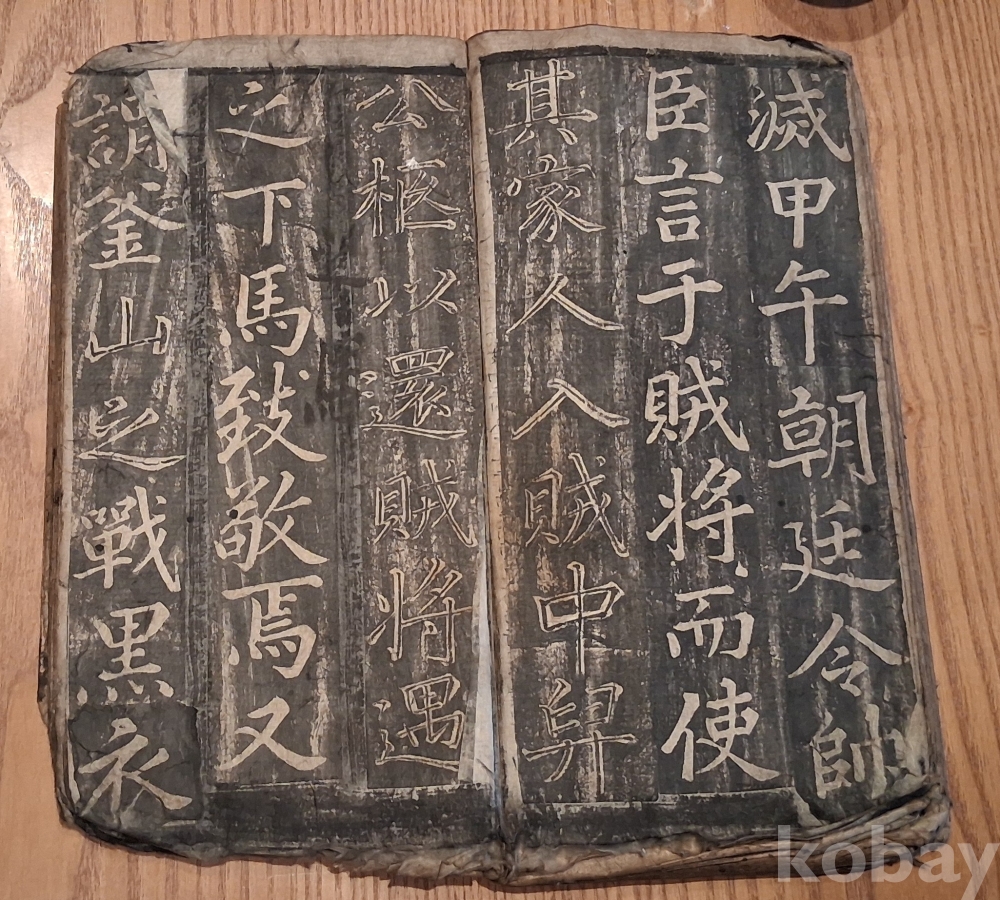 滅甲午朝廷令帥
臣言于賊將而使
其家人入賊中舁
公柩以還賊將遇
之下馬致敬焉又
謂釜山之戰黑衣
kobay